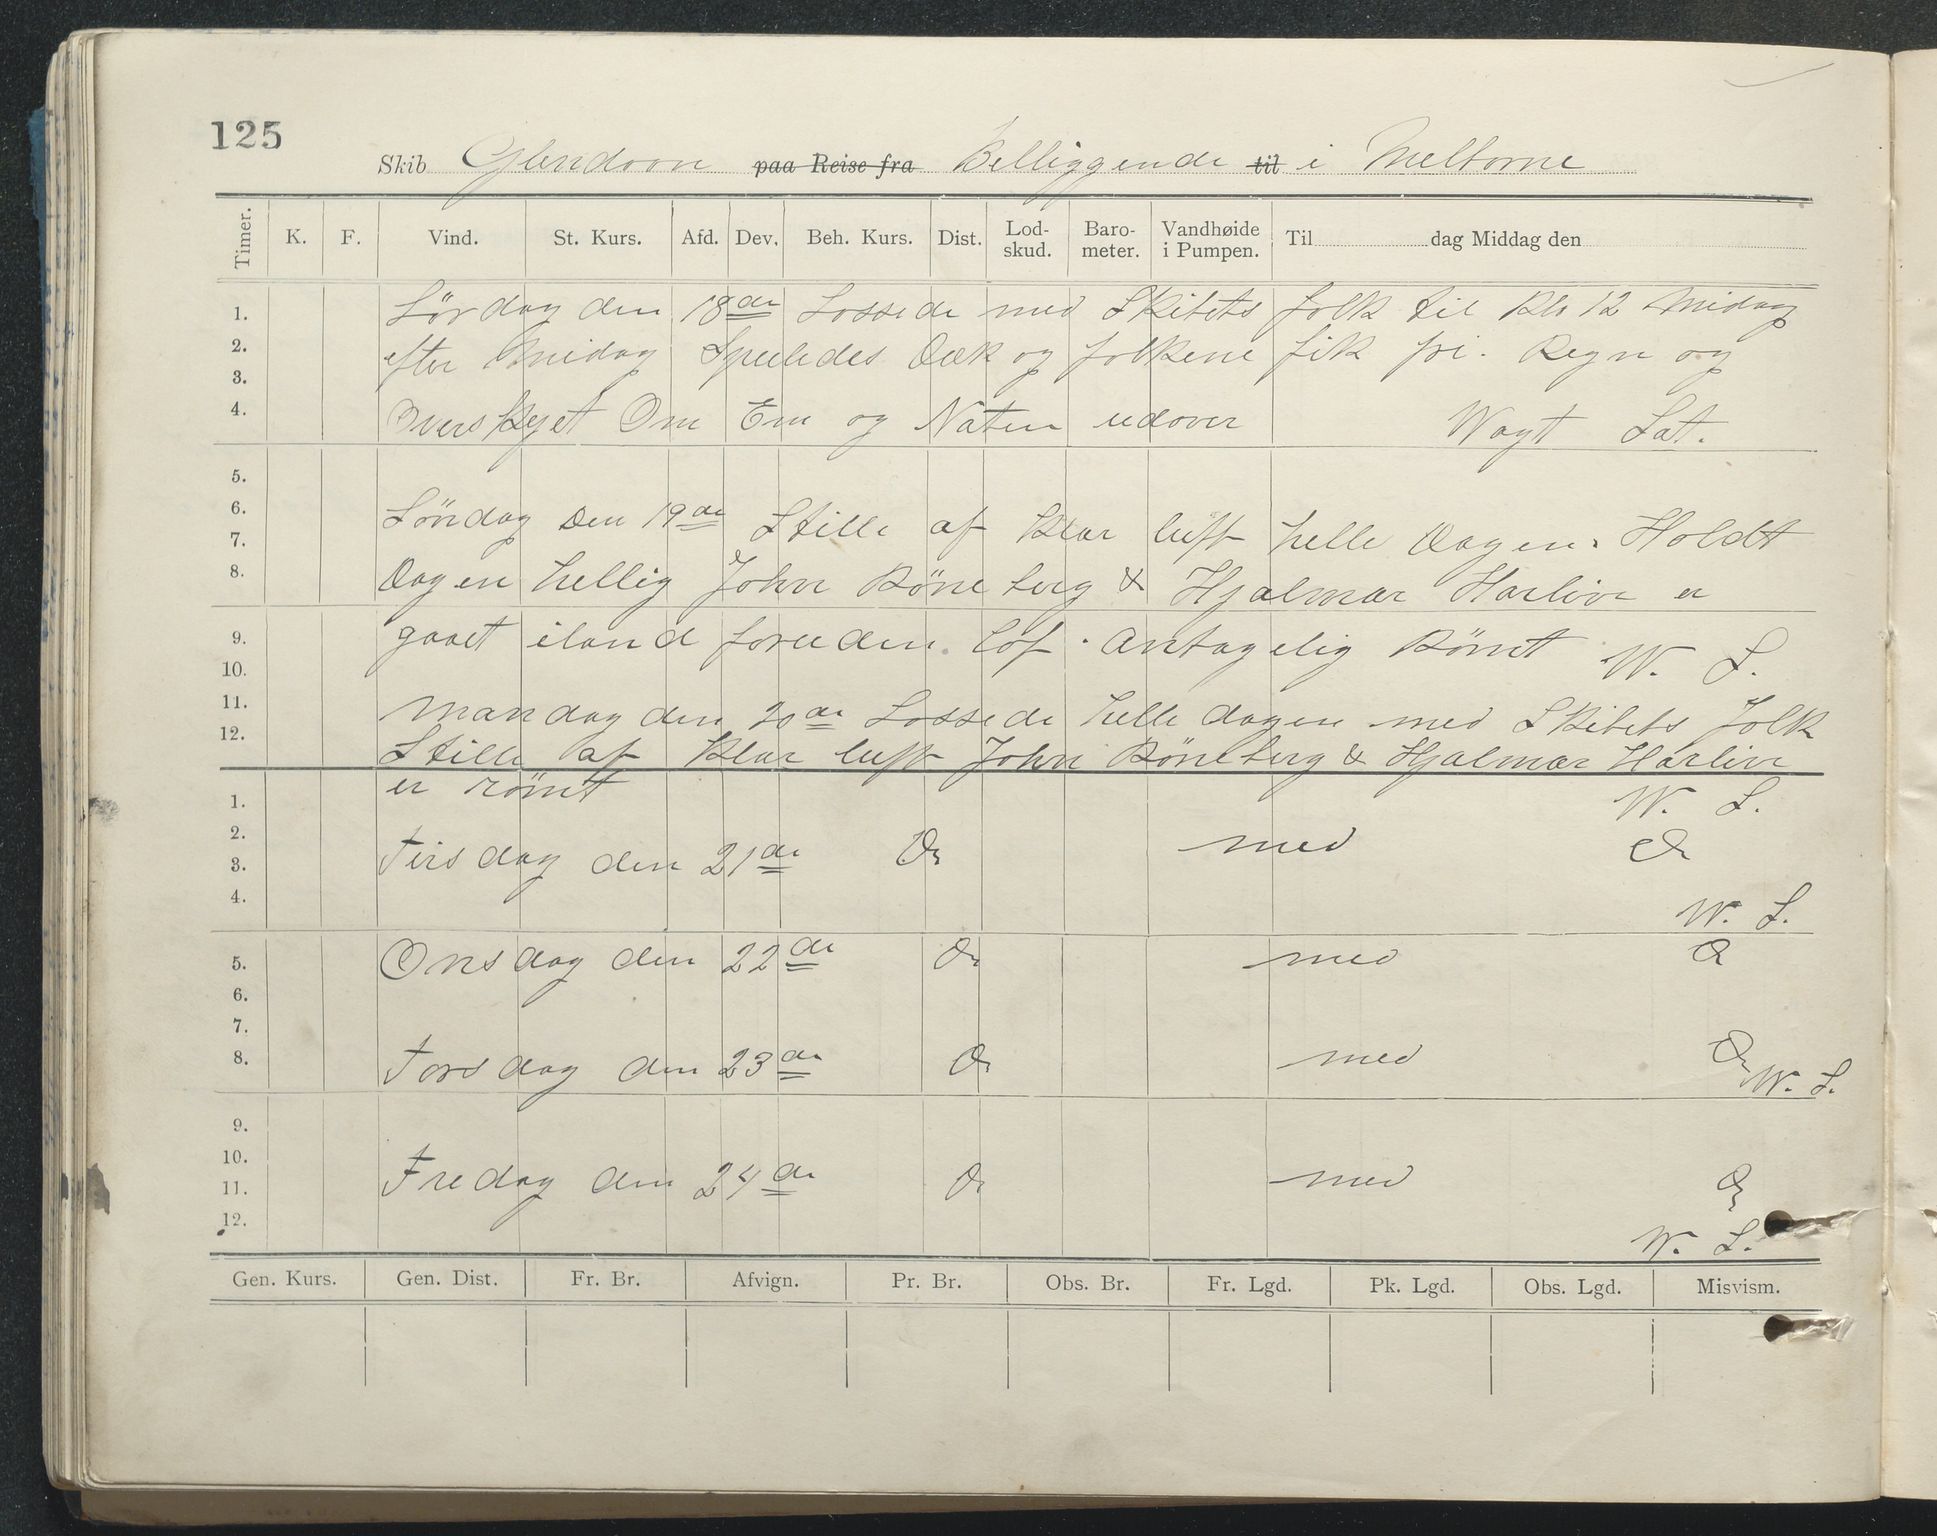 125
Skib Glendoon paa Reise fra Belliggende til i Melborne
Timer. K. F. Vind. St. Kurs. Afd. Dev. Beh. Kurs. Dist. Lod-skud. Baro-meter. Vandhøide i Pumpen. Til dag Middag den
1. Lördag den 18de Lossede med Skibets folk til Kls 12 Midag
2. efter Midag Spuledes Dæk og folkene fik fri. Regn og
3.
4. Overskyet Om Em og Naten udover Wagt Lat.
5.
6. Söndag Den 19de Stille af Klar luft helle Dagen. Holdt
7.
8. Dagen hellig John Röneberg & Hjalmar Harlive er
9. gaaet iland foruden lof. Antagelig Römt W. L.
10.
11. Mandag den 20de Lossede helle dagen med Skibets Folk
12. Stille af Klar luft John Röneberg & Hjalmar Harlive
1. er römt W. L.
2.
3. Tirsdag den 21de Do med Do
4. W. L.
5. Onsdag den 22de Do med Do
6.
7.
8. Torsdag den 23de Do med Do W. L.
9.
10.
11. Fredag den 24de Do med Do
12. W. L.
Gen. Kurs. Gen. Dist. Fr. Br. Afvign. Pr. Br. Obs. Br. Fr. Lgd. Pk. Lgd. Obs. Lgd. Misvism.